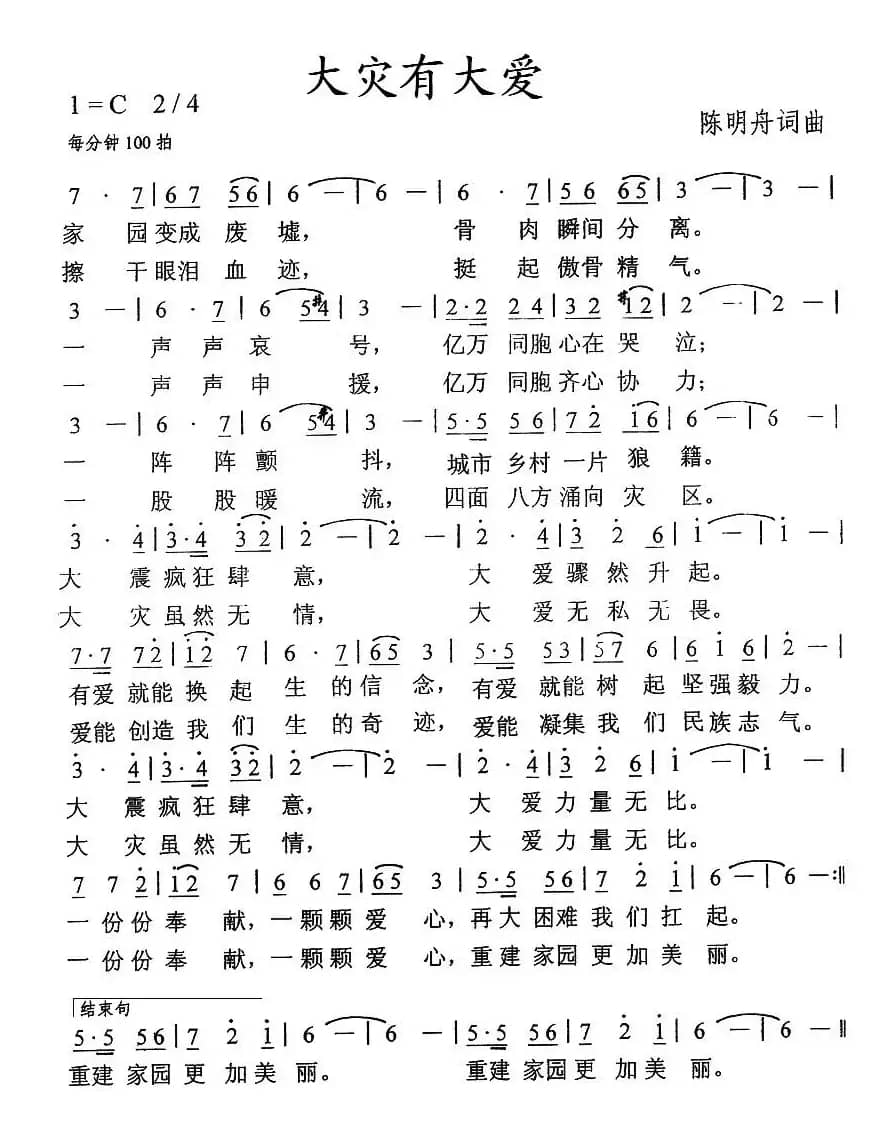 大灾有大爱
1=C 2/4
陈明舟词曲
每分钟100拍
7 · 7|67 56|6 —|6 —|6 · 7|56 65|3 —|3 —|
家 园变成 废 墟, 骨 肉 瞬间 分 离。
擦 干眼泪 血 迹, 挺 起 傲骨 精 气。
3 —|6 · 7|6 5#4|3 —|2·2 24|32 #12|2 —|2 —|
一 声 声 哀 号, 亿万 同胞 心在 哭 泣;
一 声 声 申 援, 亿万 同胞 齐心 协 力;
3 —|6 · 7|6 5#4|3 —|5·5 56|72̇ 1̇6|6 —|6 —|
一 阵 阵 颤 抖, 城市 乡村 一片 狼 籍。
一 股 股 暖 流, 四面 八方 涌向 灾 区。
3̇ · 4̇|3̇·4̇ 3̇2̇|2̇ —|2̇ —|2̇ · 4̇|3̇ 2̇ 6|1̇ —|1̇ —|
大 震 疯狂 肆 意, 大 爱 骤 然 升 起。
大 灾 虽然 无 情, 大 爱 无 私 无 畏。
7·7 72̇|1̇2̇ 7|6 · 7|65 3|5·5 53|57 6|6 1̇ 6|2̇ —|
有爱 就能 换 起 生 的 信 念, 有爱 就能 树 起 坚强 毅 力。
爱能 创造 我 们 生 的 奇 迹, 爱能 凝集 我 们 民族 志 气。
3̇ · 4̇|3̇·4̇ 3̇2̇|2̇ —|2̇ —|2̇ · 4̇|3̇ 2̇ 6|1̇ —|1̇ —|
大 震 疯 狂 肆 意, 大 爱 力 量 无 比。
大 灾 虽 然 无 情, 大 爱 力 量 无 比。
7 7 2̇|1̇2̇ 7|6 6 7|65 3|5·5 56|7 2̇ 1̇|6 —|6 —:‖
一 份 份 奉 献, 一 颗 颗 爱 心, 再 大 困难 我 们 扛 起。
一 份 份 奉 献, 一 颗 颗 爱 心, 重建 家园 更 加 美 丽。
结束句
5·5 56|7 2̇ 1̇|6 —|6 —|5·5 56|7 2̇ 1̇|6 —|6 —‖
重建 家园 更 加 美 丽。 重建 家园 更 加 美 丽。